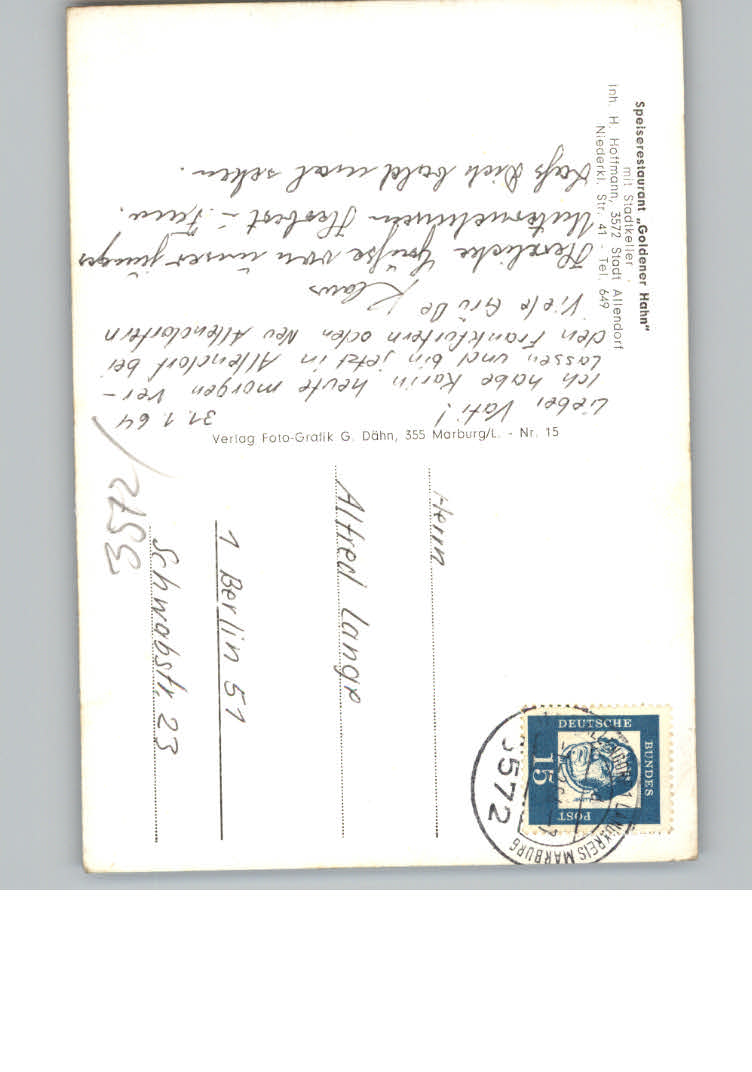 Speiserestaurant „Goldener Hahn"
mit Stadtkeller
Inh. H. Hoffmann, 3572 Stadt Allendorf
Niederkl. Str. 41 - Tel. 649
31.1.64
Lieber Vati!
Ich habe Karin heute morgen ver-
lassen und bin jetzt in Allendorf bei
den Frankfurtern oder Neu Allendorfern
Viele Grüße
Klaus
Herzliche Grüße von unser
Herbert -
Laß Dich bald mal sehen.
Verlag Foto-Grafik G. Dähn, 355 Marburg/L. - Nr. 15
3572
Herrn
Alfred Lange
1 Berlin 51
Schwabstr. 23
DEUTSCHE
BUNDES
POST
15
3572
LANDKREIS MARBURG